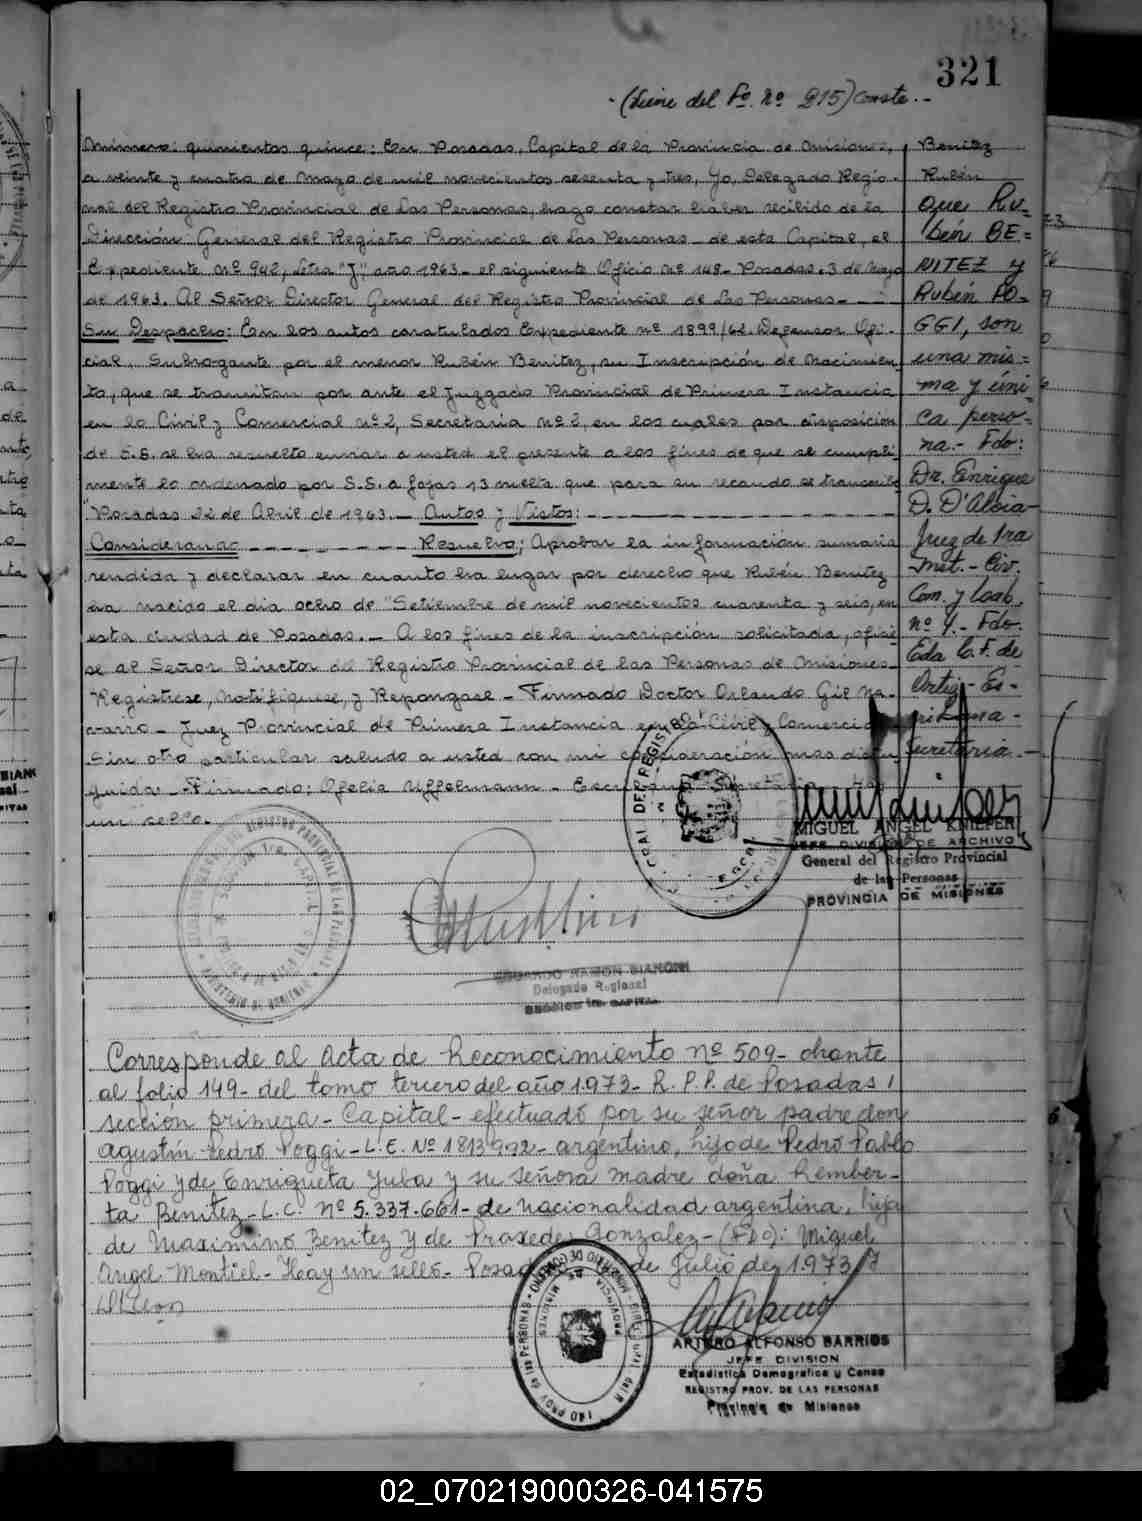 321
(Viene del Fº. Nº 215) Conste.-
Número: quinientos quince: En Posadas, Capital de la Provincia de Misiones,
a veinte y cuatro de Mayo de mil novecientos sesenta y tres, Yo, Delegado Regio-
nal del Registro Provincial de Las Personas, hago constar haber recibido de la
Dirección General del Registro Provincial de las Personas de esta Capital, el
Expediente nº 942, Letra "J" año 1963 - el siguiente Oficio Nº 148 - Posadas, 3 de Mayo
de 1963. Al Señor Director General del Registro Provincial de Las Personas -
Su Despacho: En los autos caratulados Expediente nº 1899/62. Defensor Ofi-
cial, Subrogante por el menor Rubén Benitez, su Inscripción de Nacimien
to, que se tramitan por ante el Juzgado Provincial de Primera Instancia
en lo Civil y Comercial nº 2, Secretaria nº 2, en los cuales por disposición
de S.S. se ha resuelto enviar a usted el presente a los fines de que se cumpli
mente lo ordenado por S.S. a fojas 13 vuelta que para su recaudo se transcribe
"Posadas 22 de Abril de 1963. - Autos y Vistos:
Considerando Resuelvo: Aprobar la información sumaria
rendida y declarar en cuanto ha lugar por derecho que Rubén Benitez
ha nacido el día ocho de Setiembre de mil novecientos cuarenta y seis, en
esta ciudad de Posadas. - A los fines de la inscripción solicitada, ofíci
se al Señor Director del Registro Provincial de las Personas de Misiones -
Registrese, Notifiquese, y Repongase - Firmado Doctor Orlando Gil Na-
varro - Juez Provincial de Primera Instancia en lo Civil y Comercial
Sin otro particular saludo a usted con mi consideración mas distin
guida - Firmado: Ofelia Uffelmann - Escribana Secretaria
un sello.
Benitez
Rubén
que Ru=
bén BE=
NITEZ y
Rubén PO=
GGI, son
una mis=
ma y úni
ca perso=
na.- Fdo:
Dr. Enrique
D. D'Aloia-
Juez de 1ra
Inst.- Civ.
Com. y Lab.
nº 4.- Fdo.
Eda C.F. de
Ortiz - Es-
cribana -
Secretaria. -
MIGUEL ANGEL KNIEFER
JEFE DIVISION DE ARCHIVO
General del Registro Provincial
de las Personas
PROVINCIA DE MISIONES
EDUARDO RAMON BIANCHI
Delegado Regional
SECCION 1ra. CAPITAL
Corresponde al Acta de Reconocimiento Nº 509 - obrante
al folio 149 - del tomo tercero del año 1.973 - R.P.P. de Posadas,
sección primera - Capital - efectuado por su señor padre don
Agustín Pedro Poggi - L.E. Nº 1813992 - argentino, hijo de Pedro Pablo
Poggi y de Enriqueta Yuba y su señora madre doña Rember-
ta Benitez - L.C. Nº 5.337.661 - de nacionalidad argentina, hija
de Maximino Benitez y de Praxedes Gonzalez - (FDO): Miguel
Angel Montiel - Hay un sello - Posadas de Julio de 1.973
ARTURO ALFONSO BARRIOS
JEFE DIVISION
Estadística Demografica y Censo
REGISTRO PROV. DE LAS PERSONAS
Provincia de Misiones
02_070219000326-041575